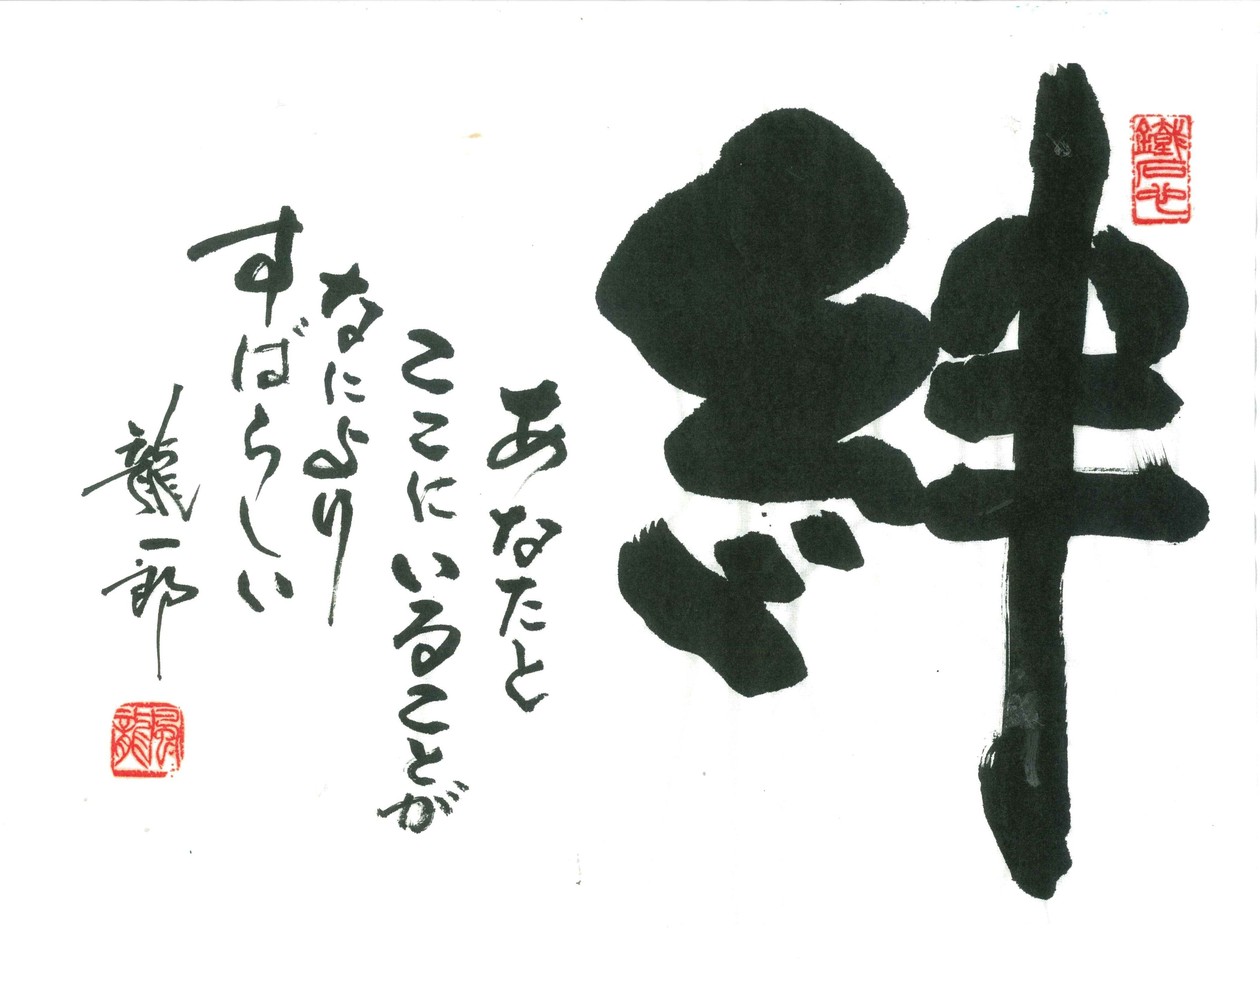 絆
あなたと
ここにいることが
なにより
すばらしい
龍一郎